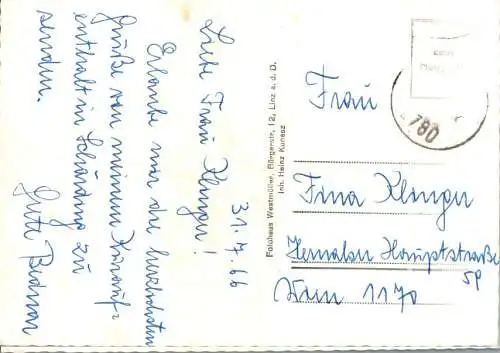 31.7.66
Liebe Frau Klinger!
Erlaube mir die herzlichsten
Grüße von meinem Kurauf=
enthalt in Schärding zu
senden.
Grete
Fotohaus Westmüller, Bürgerstr. 12, Linz a. d. D.
Inh. Heinz Kunesz
780
Frau
Fina Klinger
Hernalser Hauptstraße
59
Wien 1170